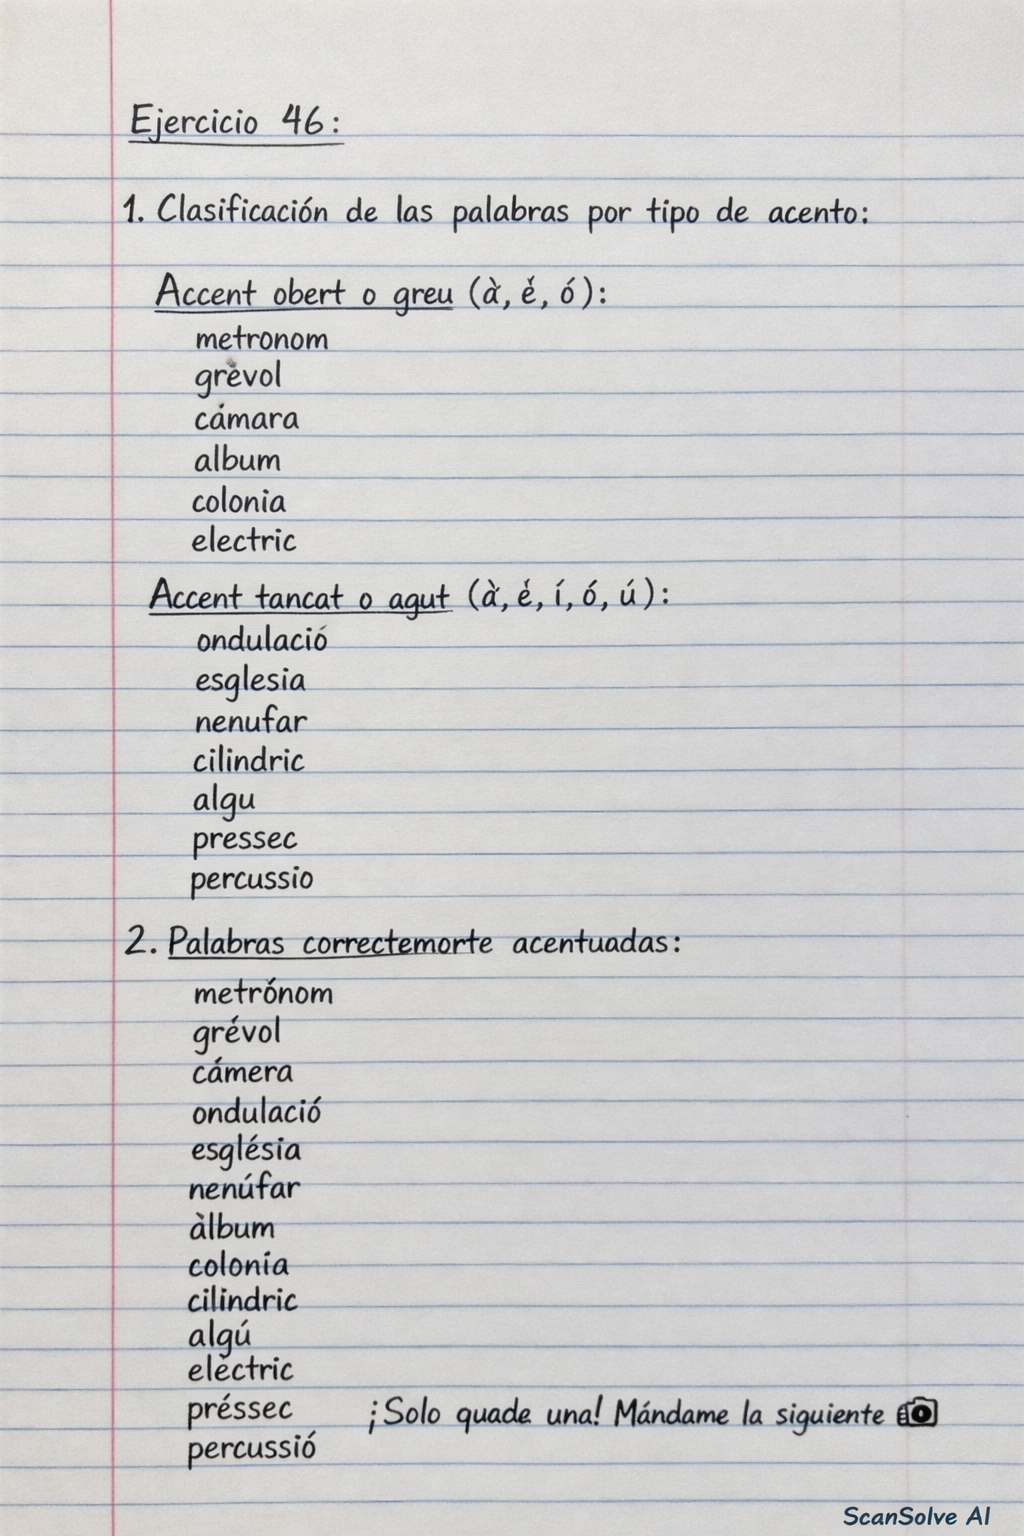 Ejercicio 46:
1. Clasificación de las palabras por tipo de acento:
Accent obert o greu (à, é, ó):
metronom
grèvol
cámara
album
colonia
electric
Accent tancat o agut (à, é, í, ó, ú):
ondulació
esglesia
nenufar
cilindric
algu
pressec
percussio
2. Palabras correctemorte acentuadas:
metrónom
grévol
cámera
ondulació
església
nenúfar
àlbum
colonia
cilindric
algú
elèctric
préssec
¡Solo quade una! Mándame la siguiente
percussió
ScanSolve AI